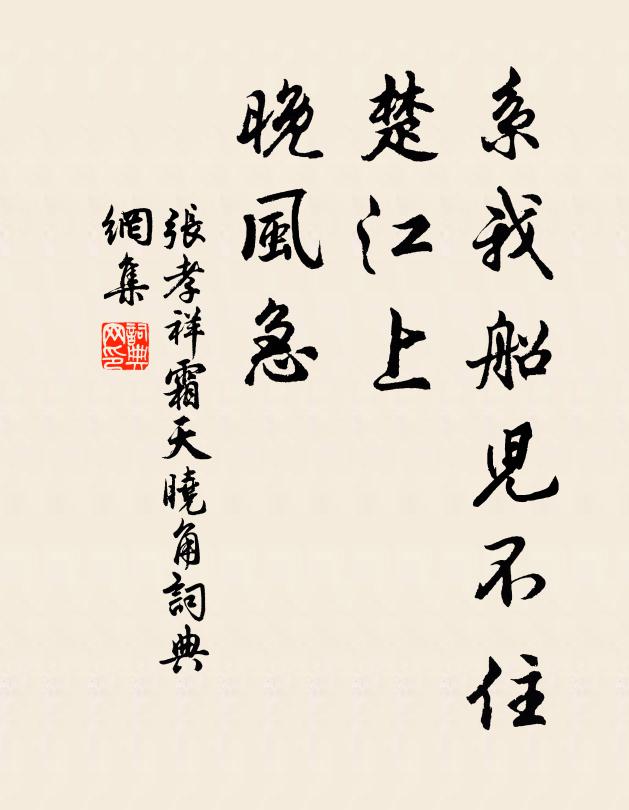 系我船兒不住
楚江上
晚風急
張孝祥霜天曉角詞典
網集
詞典
网印